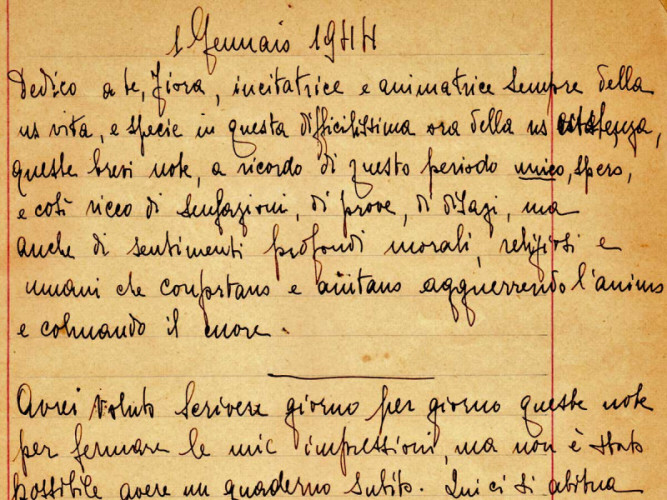 1 Gennaio 1944
Dedico a te, Fiora, incitatrice e animatrice sempre della
ns vita, e specie in questa difficilissima ora della ns esistenza,
queste brevi note, a ricordo di questo periodo unico, spero,
e così ricco di sensazioni, di prove, di disagi, ma
anche di sentimenti profondi morali, religiosi e
umani che confortano e aiutano agguerrendo l'animo
e colmando il cuore.
Avrei voluto scrivere giorno per giorno queste note
per fermare le mie impressioni, ma non è stato
possibile avere un quaderno subito. Qui ci si abitua